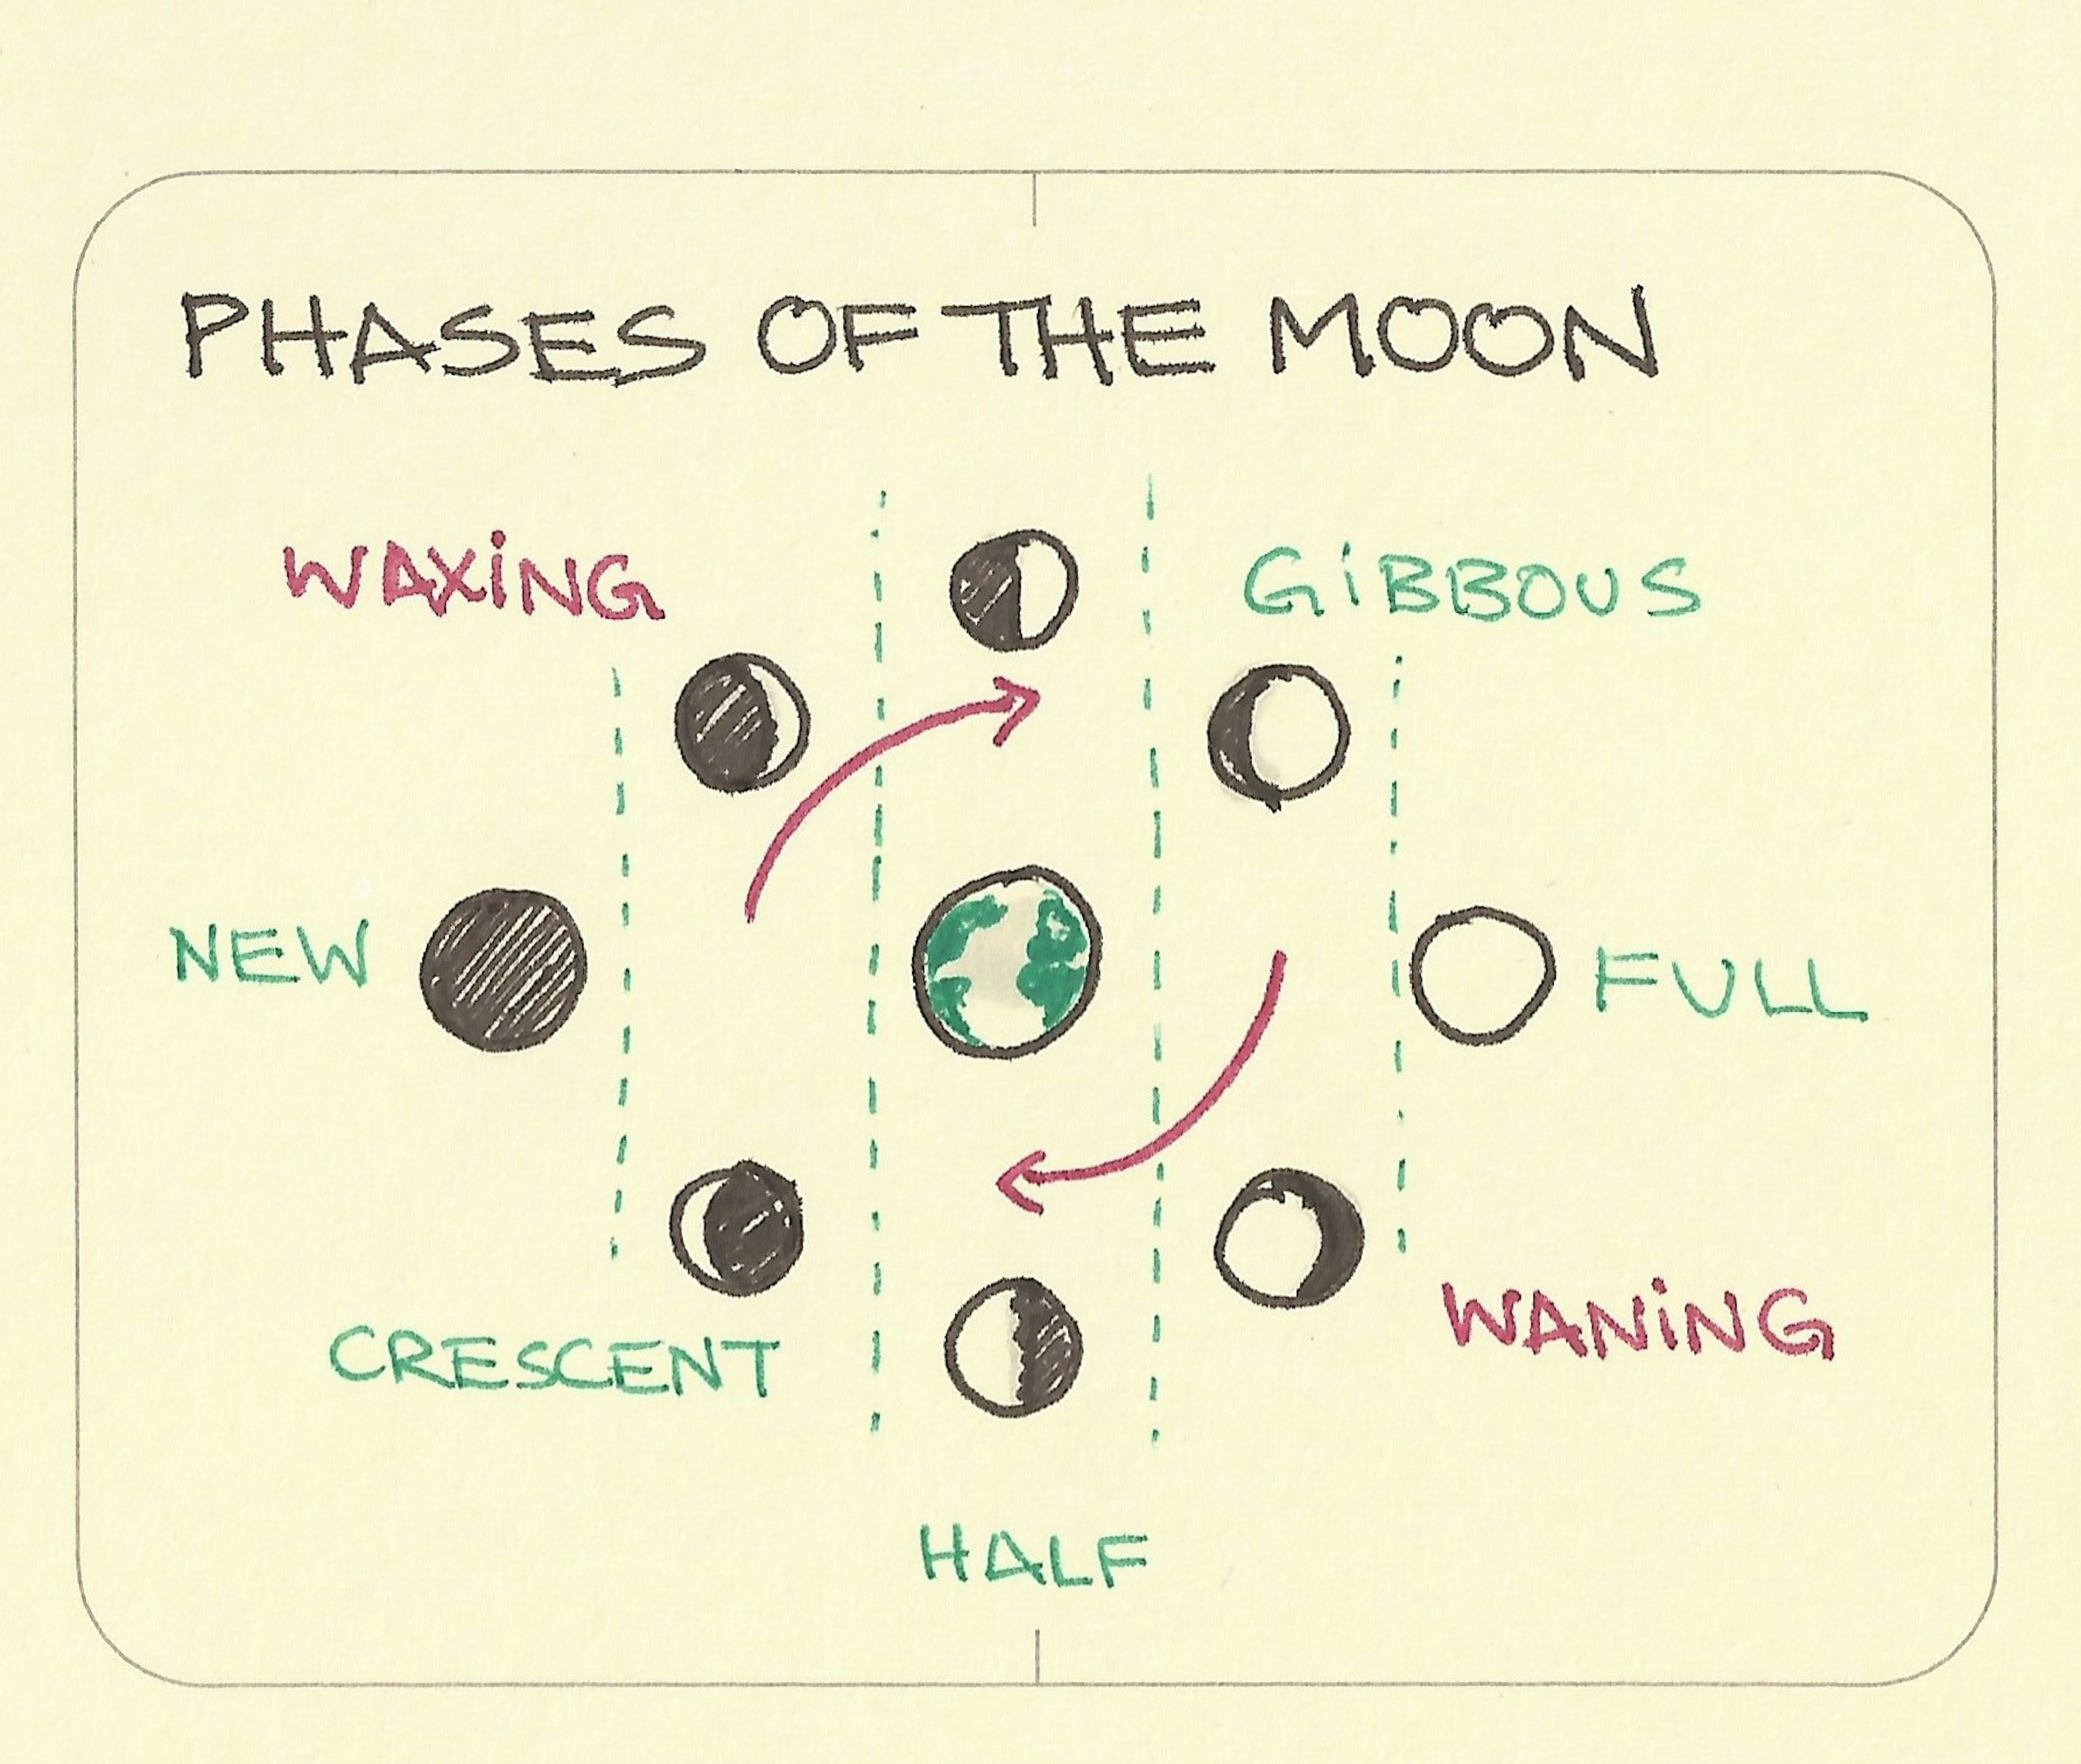 PHASES OF THE MOON
WAXiNG
GiBBOUS
NEW
FULL
CRESCENT
WANiNG
HALF